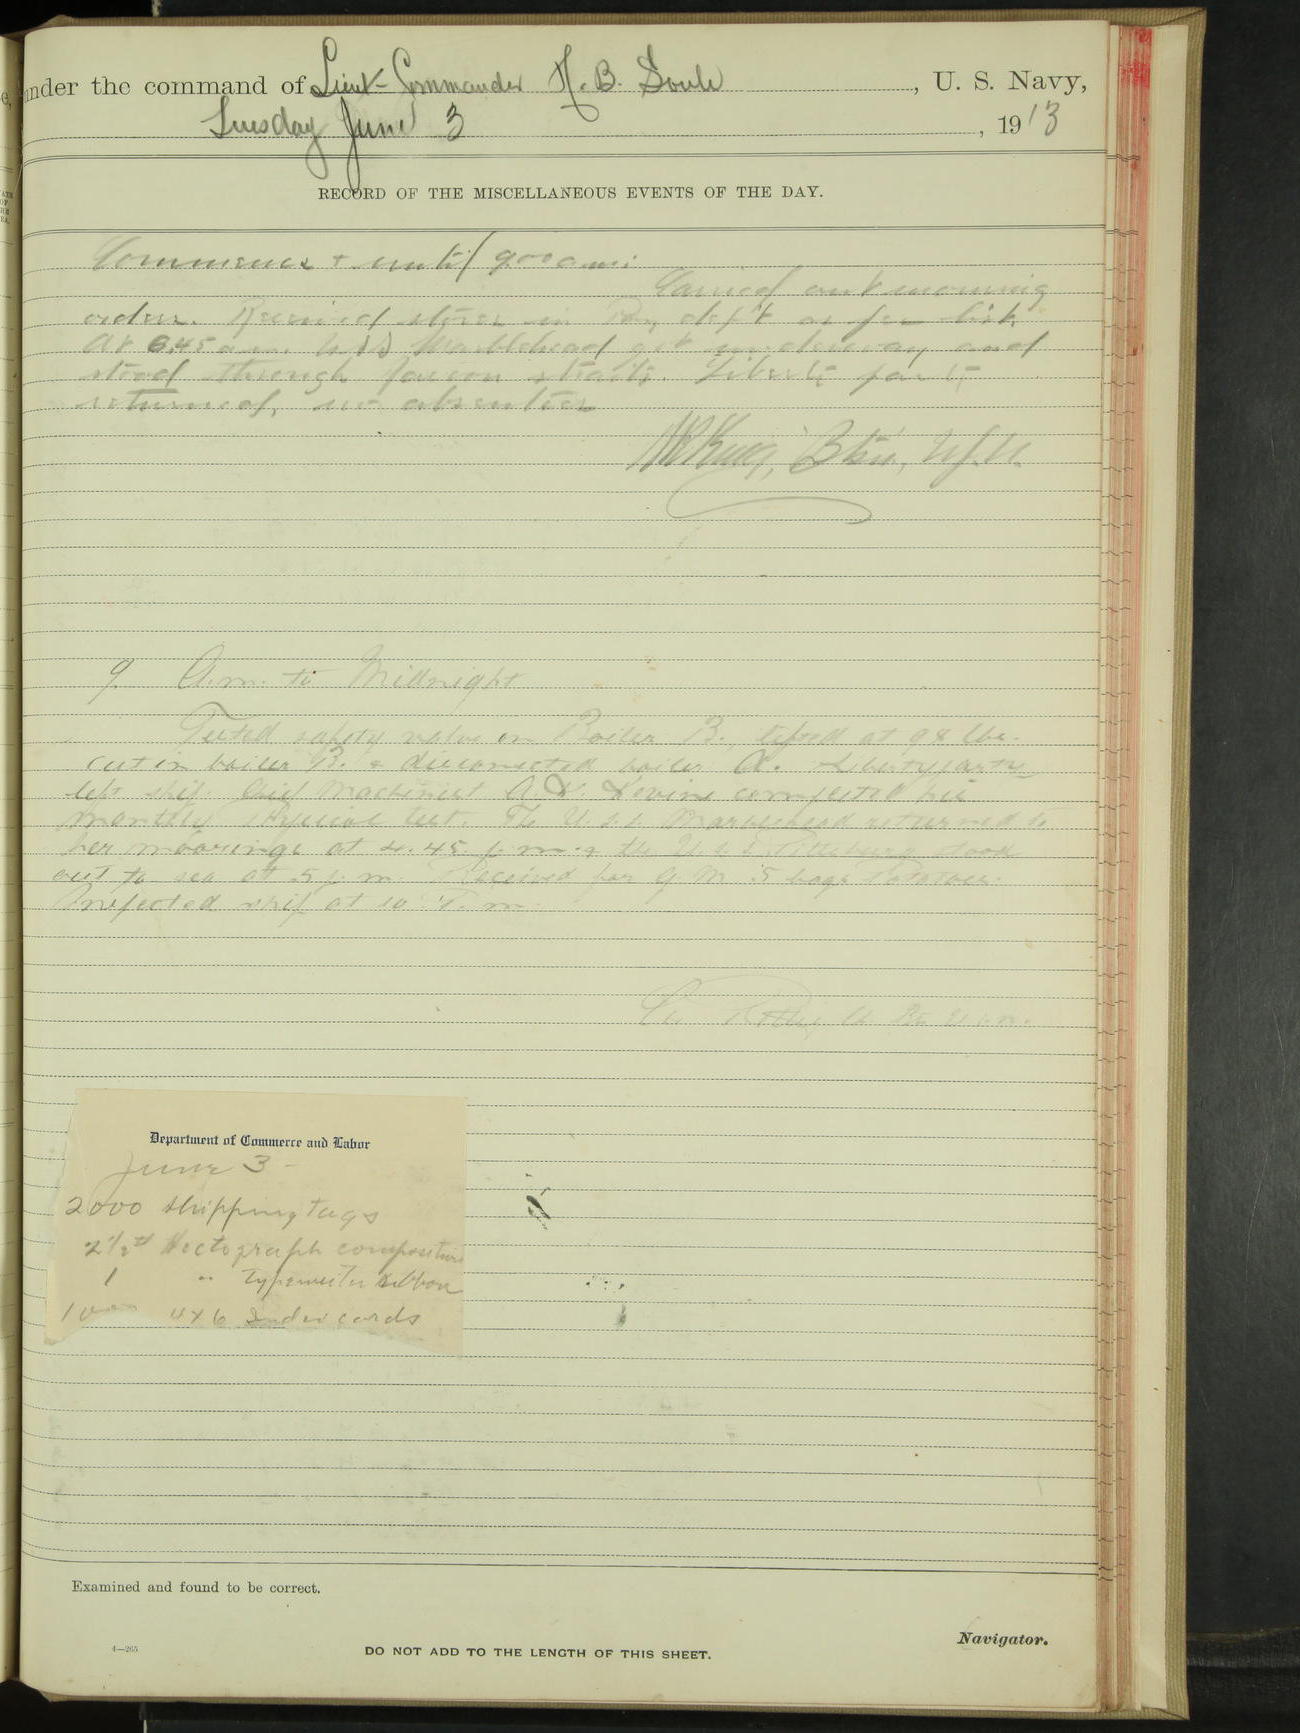 under the command of Lieut-Commander H. B. Soule, U. S. Navy,
Tuesday June 3, 1913
RECORD OF THE MISCELLANEOUS EVENTS OF THE DAY.
Commence + until 9.00 a.m.:
Carried out morning
orders. Received stores in Pay dep't as per list.
At 6.45 a.m. U.S.S Marblehead got underway and
stood through straits. Liberty party
returned, no absentees
Btsn., U.S.N.
9 A.m. to Midnight
Tested safety valve on Boiler B., lifted at 98 lbs.
cut in boiler B. & disconnected boiler A. Liberty party
left ship. Chief Machinist A. Levine completed his
monthly Physical test. The U.S.S. Marblehead returned to
her moorings at 4.45 p.m. & the U.S.S. Pittsburg stood
out to sea at 5 p.m. Received for G M 5 bags Potatoes.
Inspected ship at 10 P.m.
Department of Commerce and Labor
June 3 -
2000 shipping tags
2 1/2 # Hectograph composition
1 " Typewriter ribbon
4 x 6 Index cards
Examined and found to be correct.
Navigator.
4—265
DO NOT ADD TO THE LENGTH OF THIS SHEET.